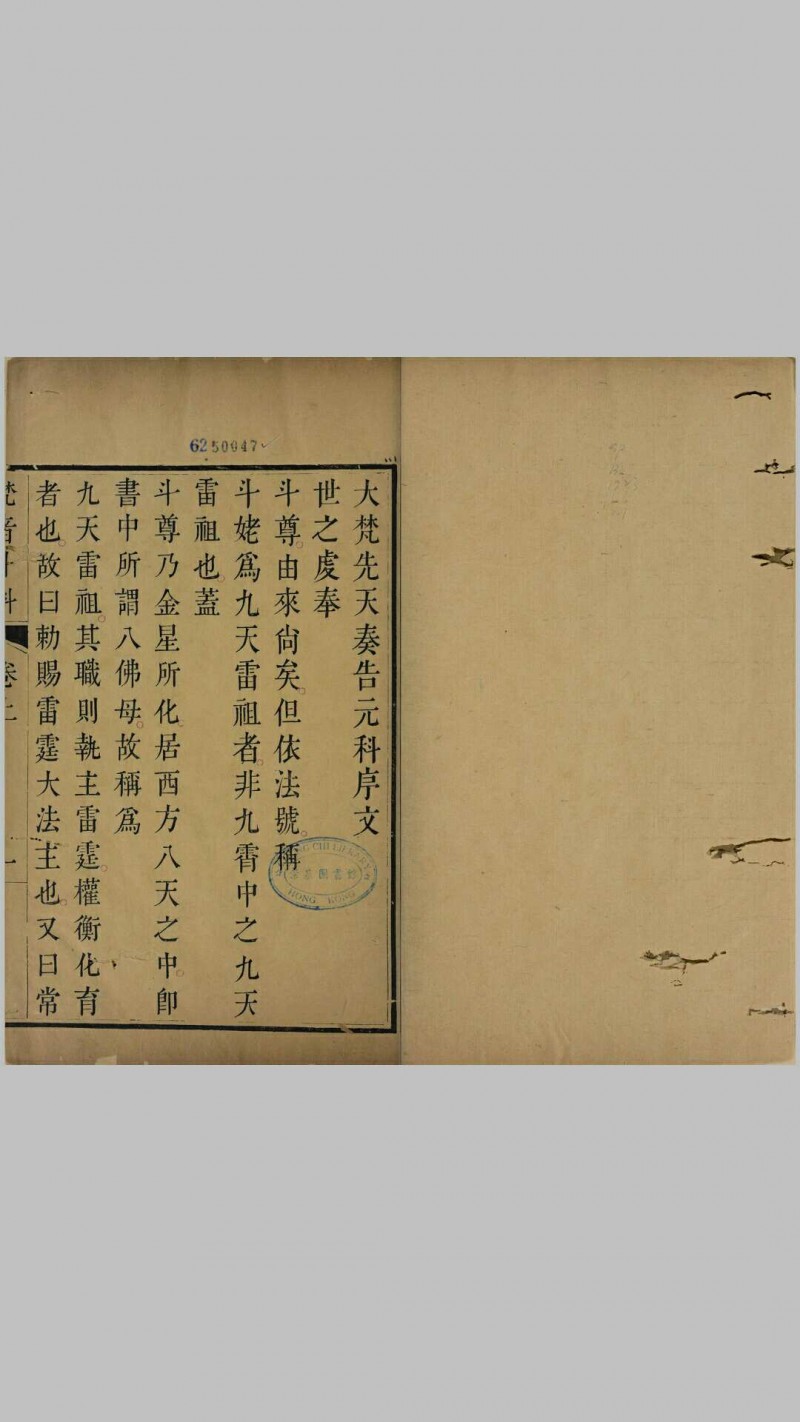 6250047
大梵先天奏告元科序文
世之虔奉
斗尊由來尙矣但依法號稱
斗姥爲九天雷祖者非九霄中之九天
雷祖也蓋
斗尊乃金星所化居西方八天之中卽
書中所謂八佛母故稱爲
九天雷祖其職則執主雷霆權衡化育
者也故曰勅賜雷霆大法主也又曰常
卷上
HONG KONG